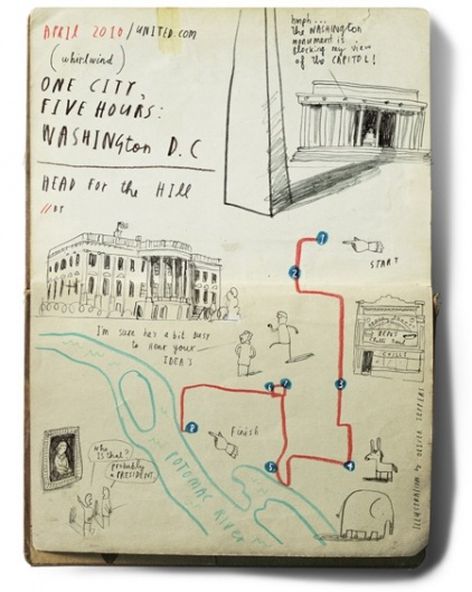 APRIL 2010 / UNITED.COM
(whirlwind)
ONE CITY,
FIVE HOURS:
WASHINGton D.C
HEAD for the HILL
// BY
hmph...
the WASHINGTON
monument is
blocking my view
of the CAPITOL!
1
START
2
I'm sure he's a bit busy
to hear your
IDEA'S
BEN'S
Chili Bowl
CHILI
3
7
8
Finish
5
4
who
Is that?
probably
a PRESIDENT
POTOMAC RIVER
ILLUSTRATION by OLIVER JEFFERS